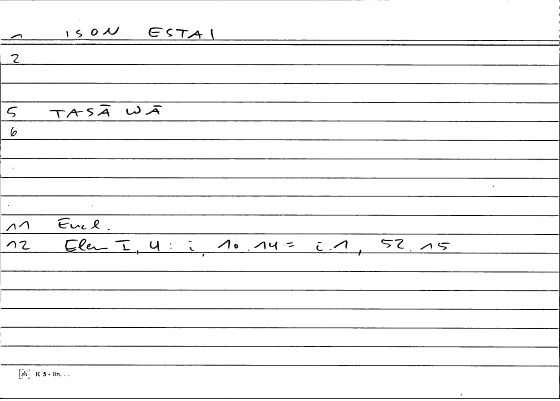 1 ISON ESTAI
2
5 TASĀWĀ
6
11 Eucl.
12 Elem I, 4 : i, 10.14 = i.1, 52.15